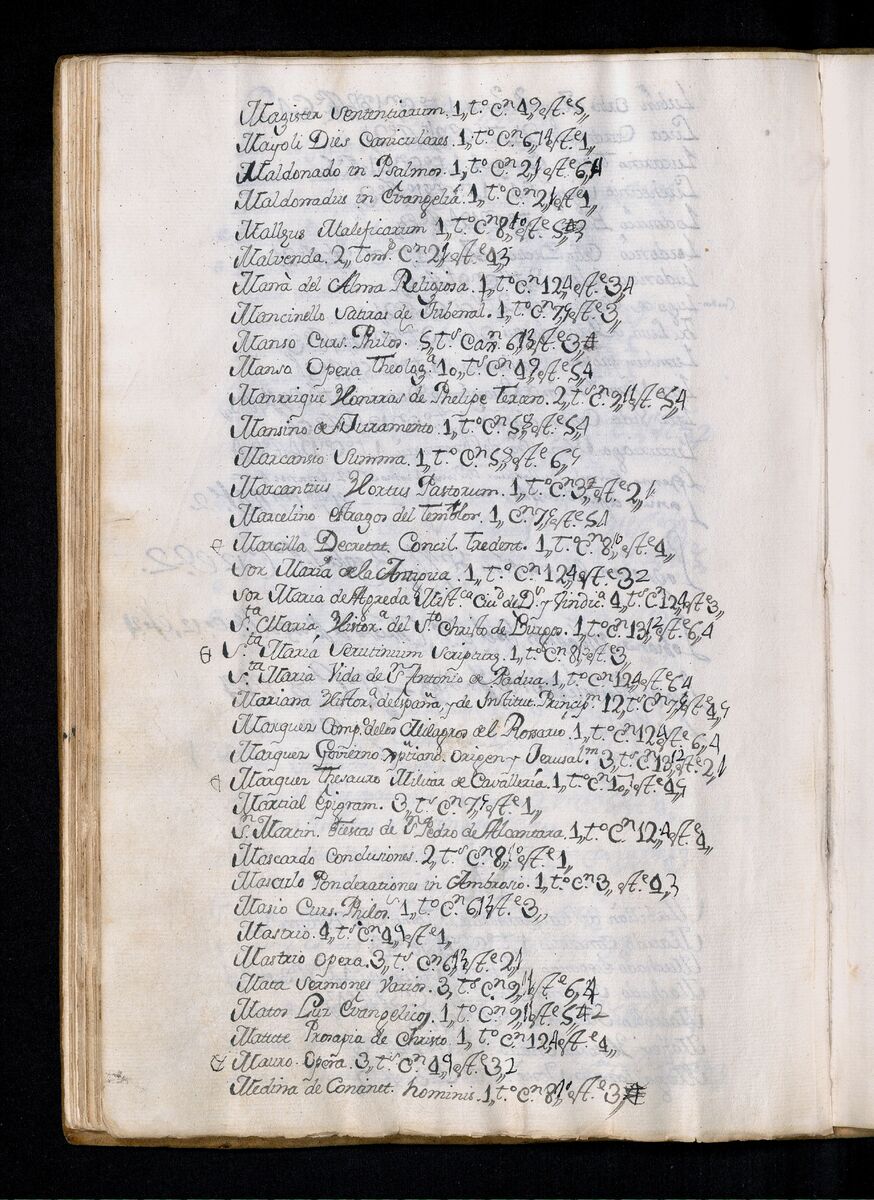 Magister Sententiarum. 1,, t.º C.n 4,9 est.e 5,,
Mayoli Dies Caniculares. 1,, t.º C.n 6,14 est.e 1,,
Maldonado in Psalmos. 1,, t.º C.n 2,1 est.e 6,4
Maldonadus in Evangeliâ. 1,, t.º C.n 2,1 est.e 1,,
Malleus Maleficarum 1,, t.º C.n 8,10 est.e 5,3
Malvenda. 2,, tom.s C.n 2,1 est.e 4,3
Manà del Alma Religiosa. 1,, t.º C.n 12,4 est.e 3,4
Mancinello Satiras de Jubenal. 1,, t.º C.n 7, est.e 3,,
Manso Curs. Philos. 5,, t.s Can.n 6,13 est.e 3,
Manso Opera Theolog.a 10,, t.s C.n 4,9 est.e 5,4
Manrrique Honrras de Phelipe Tercero. 2,, t.s C.n 9,11 est.e 5,4
Mansino de Juramento. 1,, t.º C.n 5,8 est.e 5,4
Marcansio Summa. 1,, t.º C.n 5,8 est.e 6,
Marcantius Hortus Pastorum. 1,, t.º C.n 3, est.e 2,
Marcelino Aragos del Temblor. 1,, C.n 7, est.e 5,4
Marcilla Decretat. Concil. Tredent. 1,, t.º C.n 8,10 est.e 4,,
Sor Maria de la Antigua. 1,, t.º C.n 12,4 est.e 3 2
Sor Maria de Agreda Mist.ca Ciu.d de D.s y Vindic.a 4,, t.s C.n 12,4 est.e 3,,
S.ta Maria Histor.a del S.to Christo de Burgos. 1,, t.º C.n 13,12 est.e 6,4
S.ta Maria Scrutinium Scripturæ. 1,, t.º C.n 8, est.e 3,,
S.ta Maria Vida de S.n Antonio de Padua. 1,, t.º C.n 12,4 est.e 6 4
Mariana Histor.a de españa, y de Institut. Princip.m 12,, t.s C.n 7, est.e 4,
Marquez Comp.º delos Milagros del Rossario. 1,, t.º C.n 12,4 est.e 6,4
Marquez Govierno xptiano. Origen y Jerusal.m 3,, t.s C.n 13,12 est.e 2,1
Marquez Thesauro Militar de Cavallerìa. 1,, t.º C.n 10, est.e 4,
Martial Epigram. 3,, t.s C.n 7, est.e 1,,
S.n Martin. Fiestas de S.n Pedro de Alcantara. 1,, t.º C.n 12,4 est.e 4,,
Mascardo Conclusiones. 2,, t.s C.n 8,10 est.e 1,,
Masculo Ponderationes in Ambrosio. 1,, t.º C.n 3,, est.e 4,3
Masio Curs. Philos. 1,, t.º C.n 6,13 est.e 3,,
Mastrio. 4,, t.s C.n 4,9 est.e 1,,
Mastrio Opera. 3,, t.s C.n 6,13 est.e 2,1
Mata Sermones varios. 3,, t.s C.n 9,11 est.e 6,4
Matos Luz Evangelica. 1,, t.º C.n 9,11 est.e 5, 2
Matute Prosapia de Christo. 1,, t.º C.n 12,4 est.e 4,,
Mauro Opera. 3,, t.s C.n 4,9 est.e 3,2
Medina de Continet. hominis. 1,, t.º C.n 8,10 est.e 3,